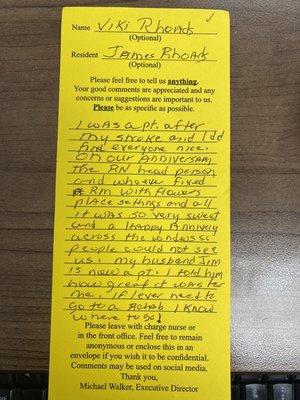 Name Viki Rhoads
(Optional)
Resident James Rhoads
(Optional)
Please feel free to tell us anything.
Your good comments are appreciated and any
concerns or suggestions are important to us.
Please be as specific as possible.
I was a pt. after
my stroke and I did
find everyone nice.
On our Anniversary
the RN head person
and whoever fixed
Rm with flowers
place settings and all
it was so very sweet
and a Happy Annivery
across the windows so
people could not see
us. My husband Jim
is now a pt. I told him
how great it was for
me. If I ever need to
go to a Rehab I know
where to go!
Please leave with charge nurse or
in the front office. Feel free to remain
anonymous or enclose this in an
envelope if you wish it to be confidential.
Comments may be used on social media.
Thank you,
Michael Walker, Executive Director